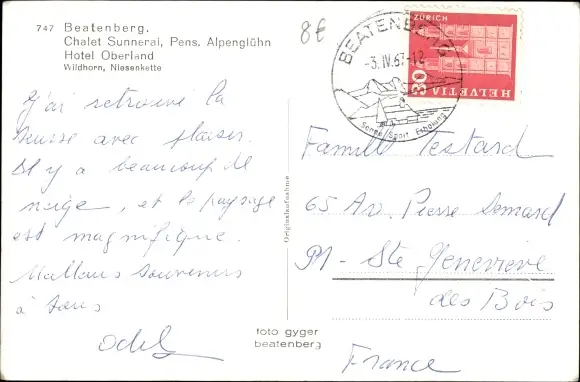 747 Beatenberg.
Chalet Sunnerai, Pens. Alpenglühn
Hotel Oberland
Wildhorn, Niesenkette
8€
BEATENBERG
-3.IV.67-18
Sonne/Sport Erholung
ZÜRICH
30
HELVETIA
J'ai retrouvé la
Suisse avec plaisir.
Il y a beaucoup de
neige, et le paysage
est magnifique.
Meilleurs souvenirs
à tous
Famille Testard
65 Av. Pierre Semard
91 - Ste Geneviève
des Bois
France
Originalaufnahme
foto gyger
beatenberg